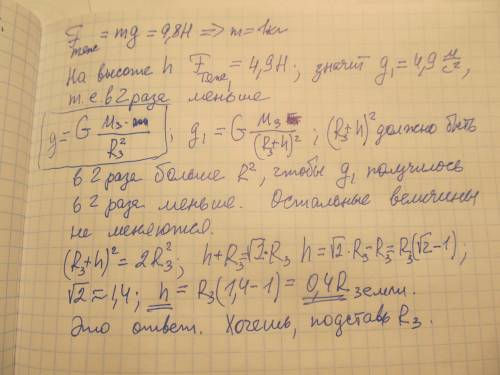 Fтяж = mg = 9,8Н => m = 1кг
На высоте h Fтяж₁ = 4,9Н; значит g₁ = 4,9 м/с²,
т.е. в 2 раза меньше
g = G Mз / Rз² ; g₁ = G Mз / (Rз+h)² ; (Rз+h)² должно быть
в 2 раза больше R², чтобы g₁ получилось
в 2 раза меньше. Остальные величины
не меняются.
(Rз+h)² = 2Rз² ; h+Rз = √2·Rз h = √2·Rз-Rз = Rз(√2-1) ;
√2 ≈ 1,4 ; h = Rз(1,4-1) = 0,4R земли.
Это ответ. Хочешь, подставь Rз.